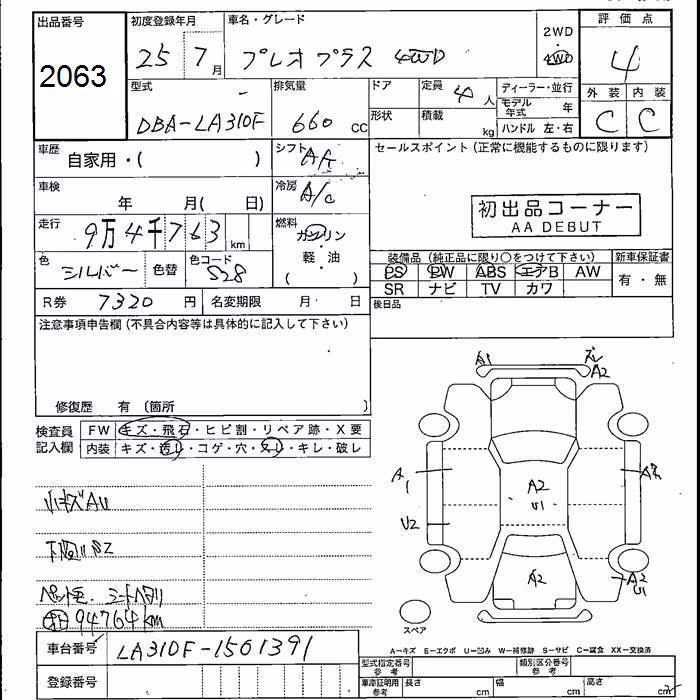 出品番号 初度登録年月 車名・グレード 2WD 評価点
2063 25 7月 プレオプラス 4WD 4WD 4
型式 排気量 ドア 定員 4人 ディーラー・並行 外装 内装
DBA-LA310F 660 CC 形状 積載 kg モデル年式 年 C C
ハンドル 左・右
車歴 自家用・( ) シフト セールスポイント (正常に機能するものに限ります)
車検 年 月( 日) 冷房 A/C
初出品コーナー
AA DEBUT
走行 9万4千763 km 燃料 ガソリン・軽・油 ( )
色 シルバー 色替 色コード S28
装備品 (純正品に限り○をつけて下さい) 新車保証書
PS PW ABS エアB AW 有・無
SR ナビ TV カワ
R券 7320 円 名変期限 月 日 後日品
注意事項申告欄 (不具合内容等は具体的に記入して下さい)
修復歴 有 〔箇所 〕
検査員記入欄 FW キズ・飛石・ヒビ割・リペア跡・X要
内装 キズ・汚れ・コゲ・穴・スレ・キレ・破レ
A1 ズレ A2
A1 A2 U1
U2
A2
A2 U1
小キズAU
94764km
スペア
A-キズ E-エクボ U-凹み W-補修跡 S-サビ C-腐食 XX-交換済
車台番号 LA310F-1501391
登録番号
型式指定番号 参考 類別区分番号 参考
車庫証明用 参考 長さ cm 幅 cm 高さ cm